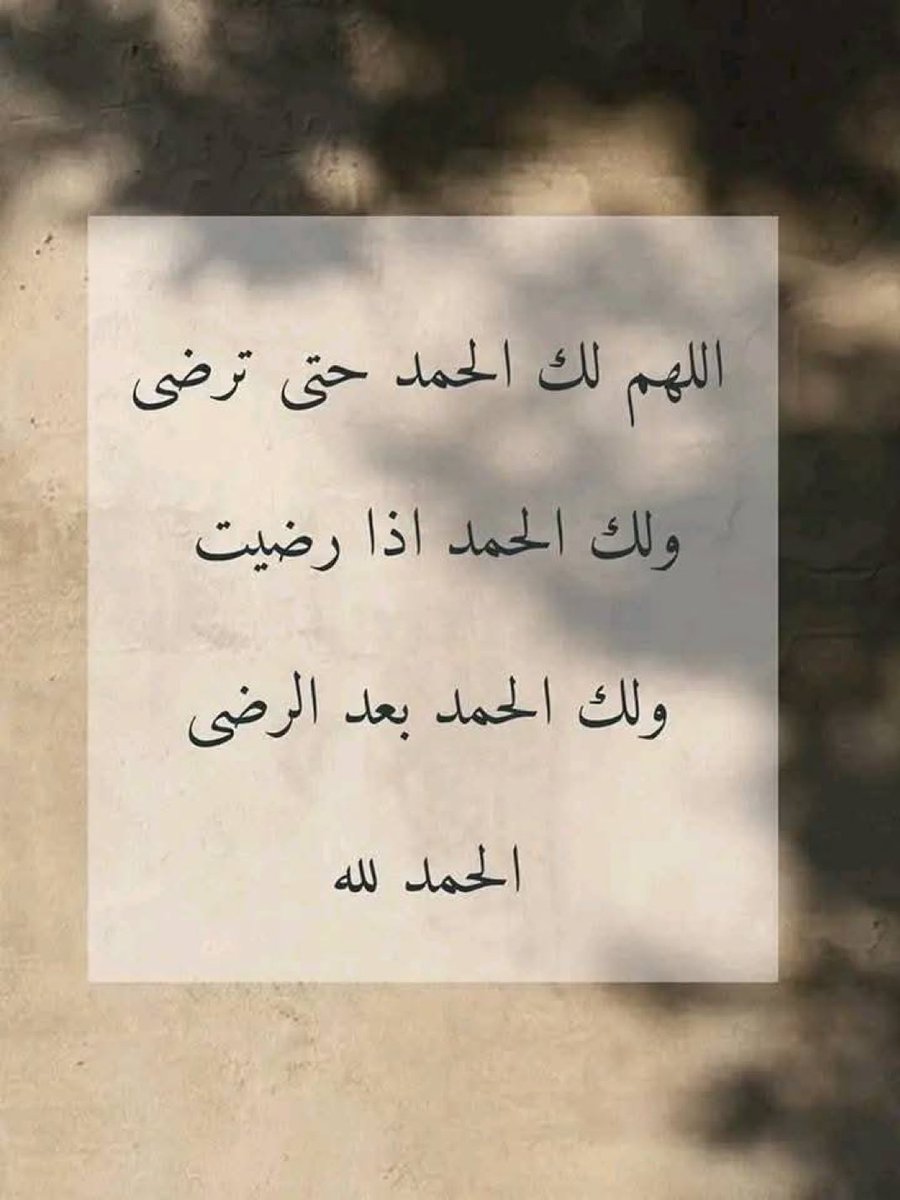 اللهم لك الحمد حتى ترضى
ولك الحمد اذا رضيت
ولك الحمد بعد الرضى
الحمد لله